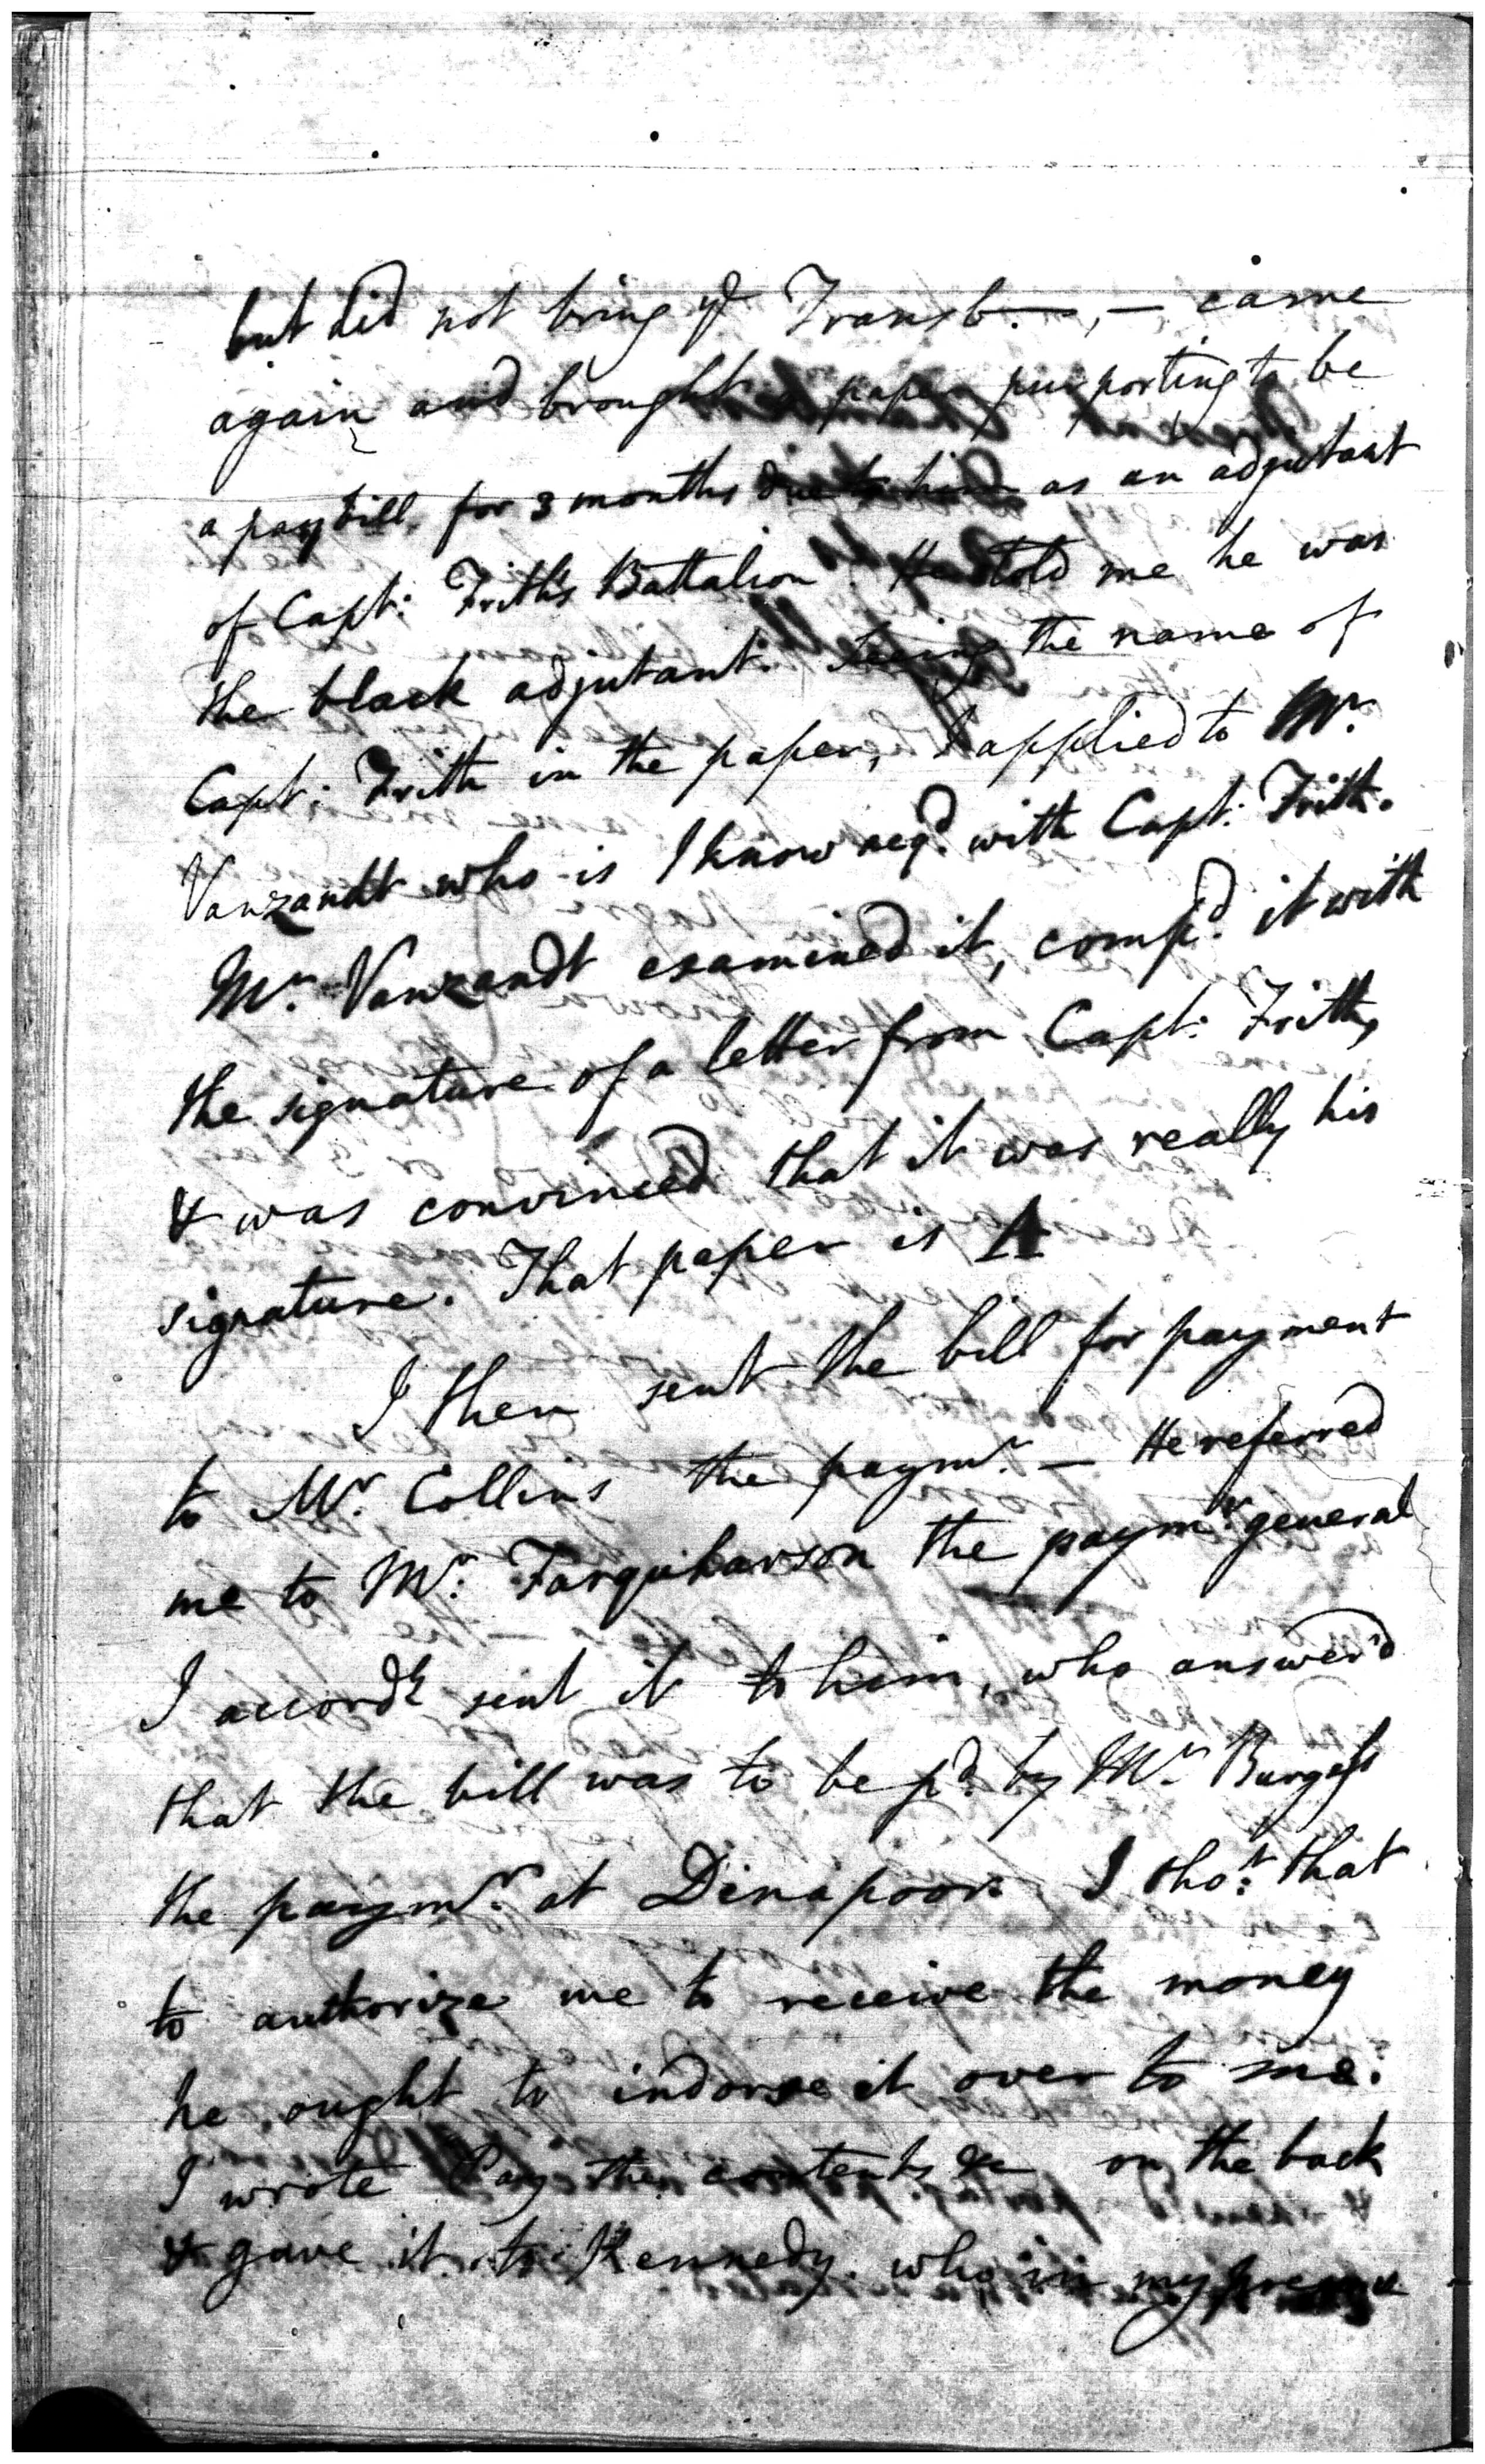 but did not bring yͤ Transl.—,— came
again and brought a paper purporting to be
a pay bill, for 3 months due to him as an adjutant
of Capt: Frith's Battalion. He told me he was
the black adjutant. Seeing the name of
Capt: Frith in the paper, I applied to Mr.
Vanzandt who is I know acqd. with Capt: Frith.
Mr. Vanzandt examined it, compd. it with
the signature of a letter from Capt: Frith,
& was convinced that it was really his
signature. That paper is A
I then sent the bill for payment
to Mr. Collins the paymr. — He referred
me to Mr. Farquharson the paymr. general
I accordy sent it to him, who answer'd
that the bill was to be pd. by Mr. Burgess
the paymr. at Dinapoor. I thot. that
to authorize me to receive the money
he ought to indorse it over to me.
I wrote Pay the contents &c on the back
& gave it to Kennedy who in my presence